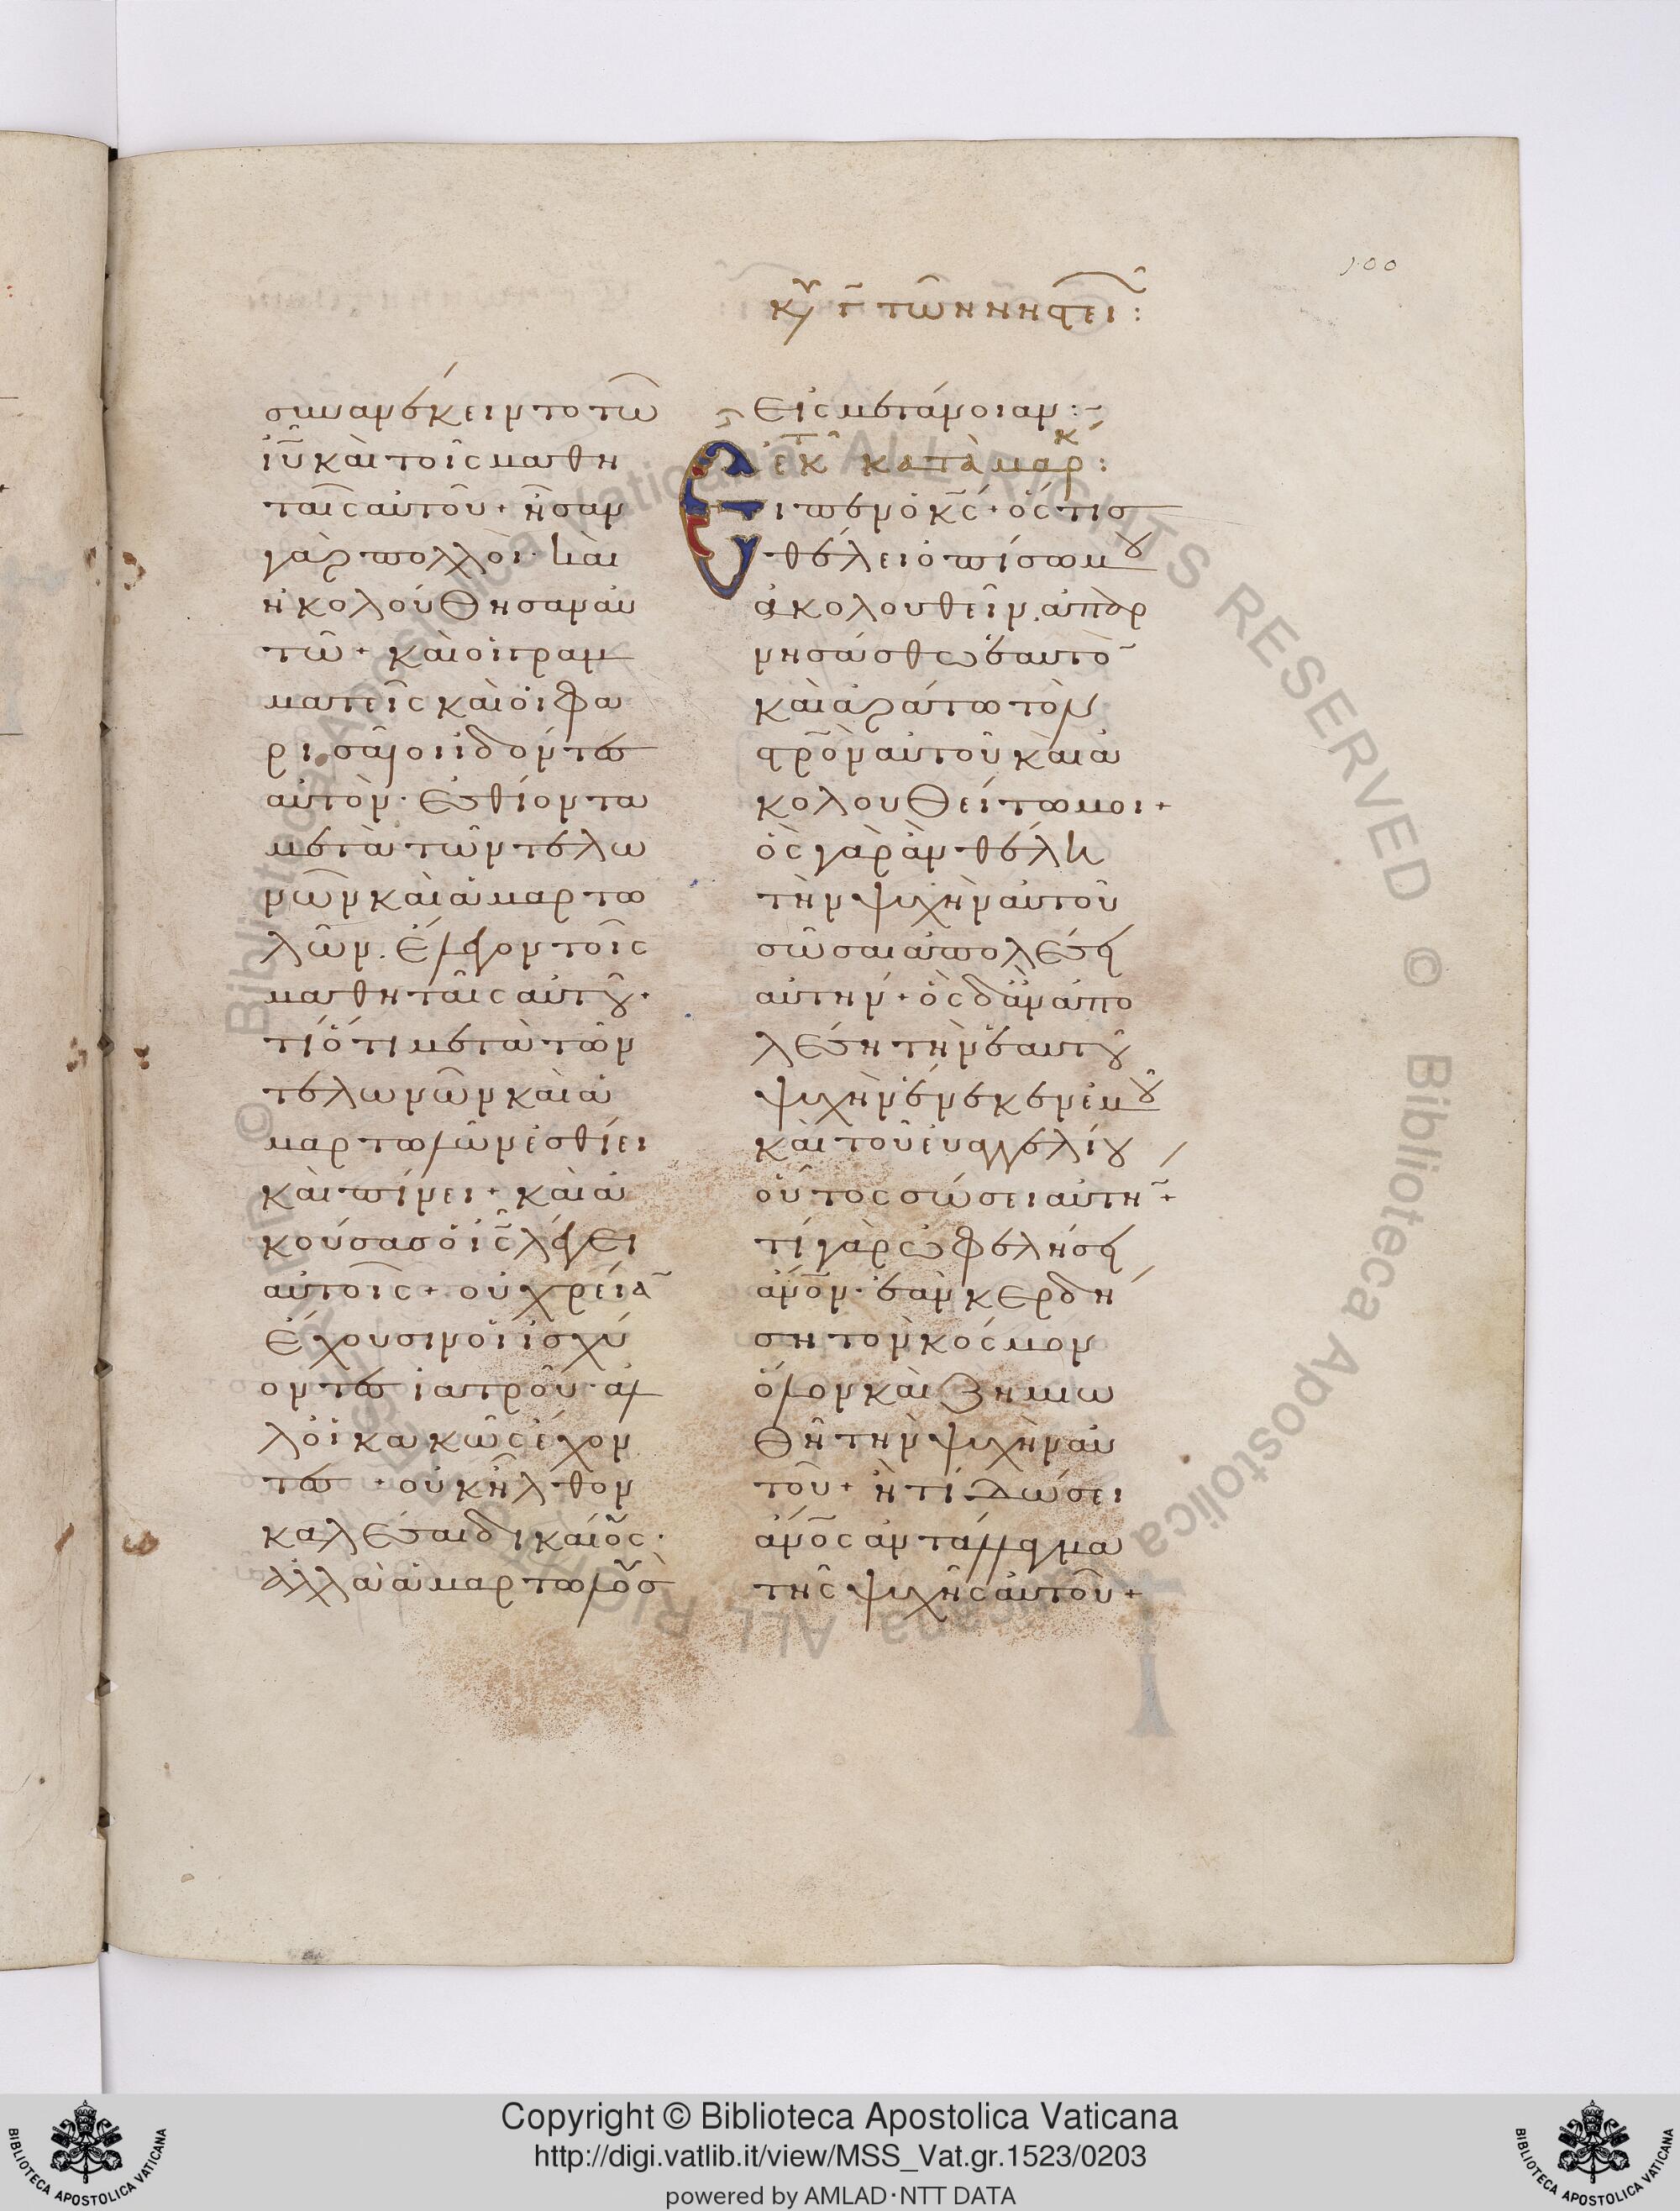 100
κυ γ τῶν νηστει :
συνανέκειντο τῶ
ἰῦ καὶ τοῖς μαθη
ταῖς αὐτοῦ + ἦσαν
γὰρ πολλοὶ · καὶ
ἠκολούθησαν αὐ
τῶ + καὶ οἱ γραμ
ματεῖς καὶ οἱ φα
ρισαῖοι ἰδόντες
αὐτὸν · ἐσθίοντα
μετὰ τῶν τελω
νῶν καὶ ἁμαρτω
λῶν . ἔλεγον τοῖς
μαθηταῖς αὐτοῦ ·
τί ὅτι μετὰ τῶν
τελωνῶν καὶ ἁ
μαρτωλῶν ἐσθίει
καὶ πίνει + καὶ ἀ
κούσας ὁ ἰς λέγει
αὐτοῖς + οὐ χρείᾱ
ἔχουσιν οἱ ἰσχύ
οντες ἰατροῦ · ἀλ
λ' οἱ κακῶς ἔχον
τες + οὐκ ἦλθον
καλέσαι δικαίους ·
ἀλλὰ ἁμαρτωλοὺς
εἰς μετάνοιαν :~
ἐκ τοῦ κατὰ μάρκ :
Εἶπεν ὁ κς + ὅστις
θέλει ὀπίσω μου
ἀκολουθεῖν . ἀπαρ
νησάσθω ἑαυτὸ̄
καὶ ἀράτω τὸν
στρ̄ον αὐτοῦ καὶ ἀ
κολουθείτω μοι +
ὃς γὰρ ἂν θέλη
τὴν ψυχὴν αὐτοῦ
σῶσαι ἀπολέσει
αὐτήν + ὃς δ' ἂν ἀπο
λέση τὴν ἑαυτοῦ
ψυχὴν ἕνεκεν ἐμοῦ
καὶ τοῦ εὐαγγελίου
οὗτος σώσει αὐτή̄ +
τί γὰρ ὠφελήσει
ἄνον · ἐὰν κερδή
ση τὸν κόσμον
ὅλον καὶ ζημιω
θῆ τὴν ψυχὴν αὐ
τοῦ + ἢ τί δώσει
ἄνος ἀντάλλαγμα
τῆς ψυχῆς αὐτοῦ +
© Biblioteca Apostolica Vaticana ALL RIGHTS RESERVED © Biblioteca Apostolica Vaticana ALL RIGHTS RESERVED
Copyright © Biblioteca Apostolica Vaticana
http://digi.vatlib.it/view/MSS_Vat.gr.1523/0203
powered by AMLAD·NTT DATA
BIBLIOTECA APOSTOLICA VATICANA
BIBLIOTECA APOSTOLICA VATICANA